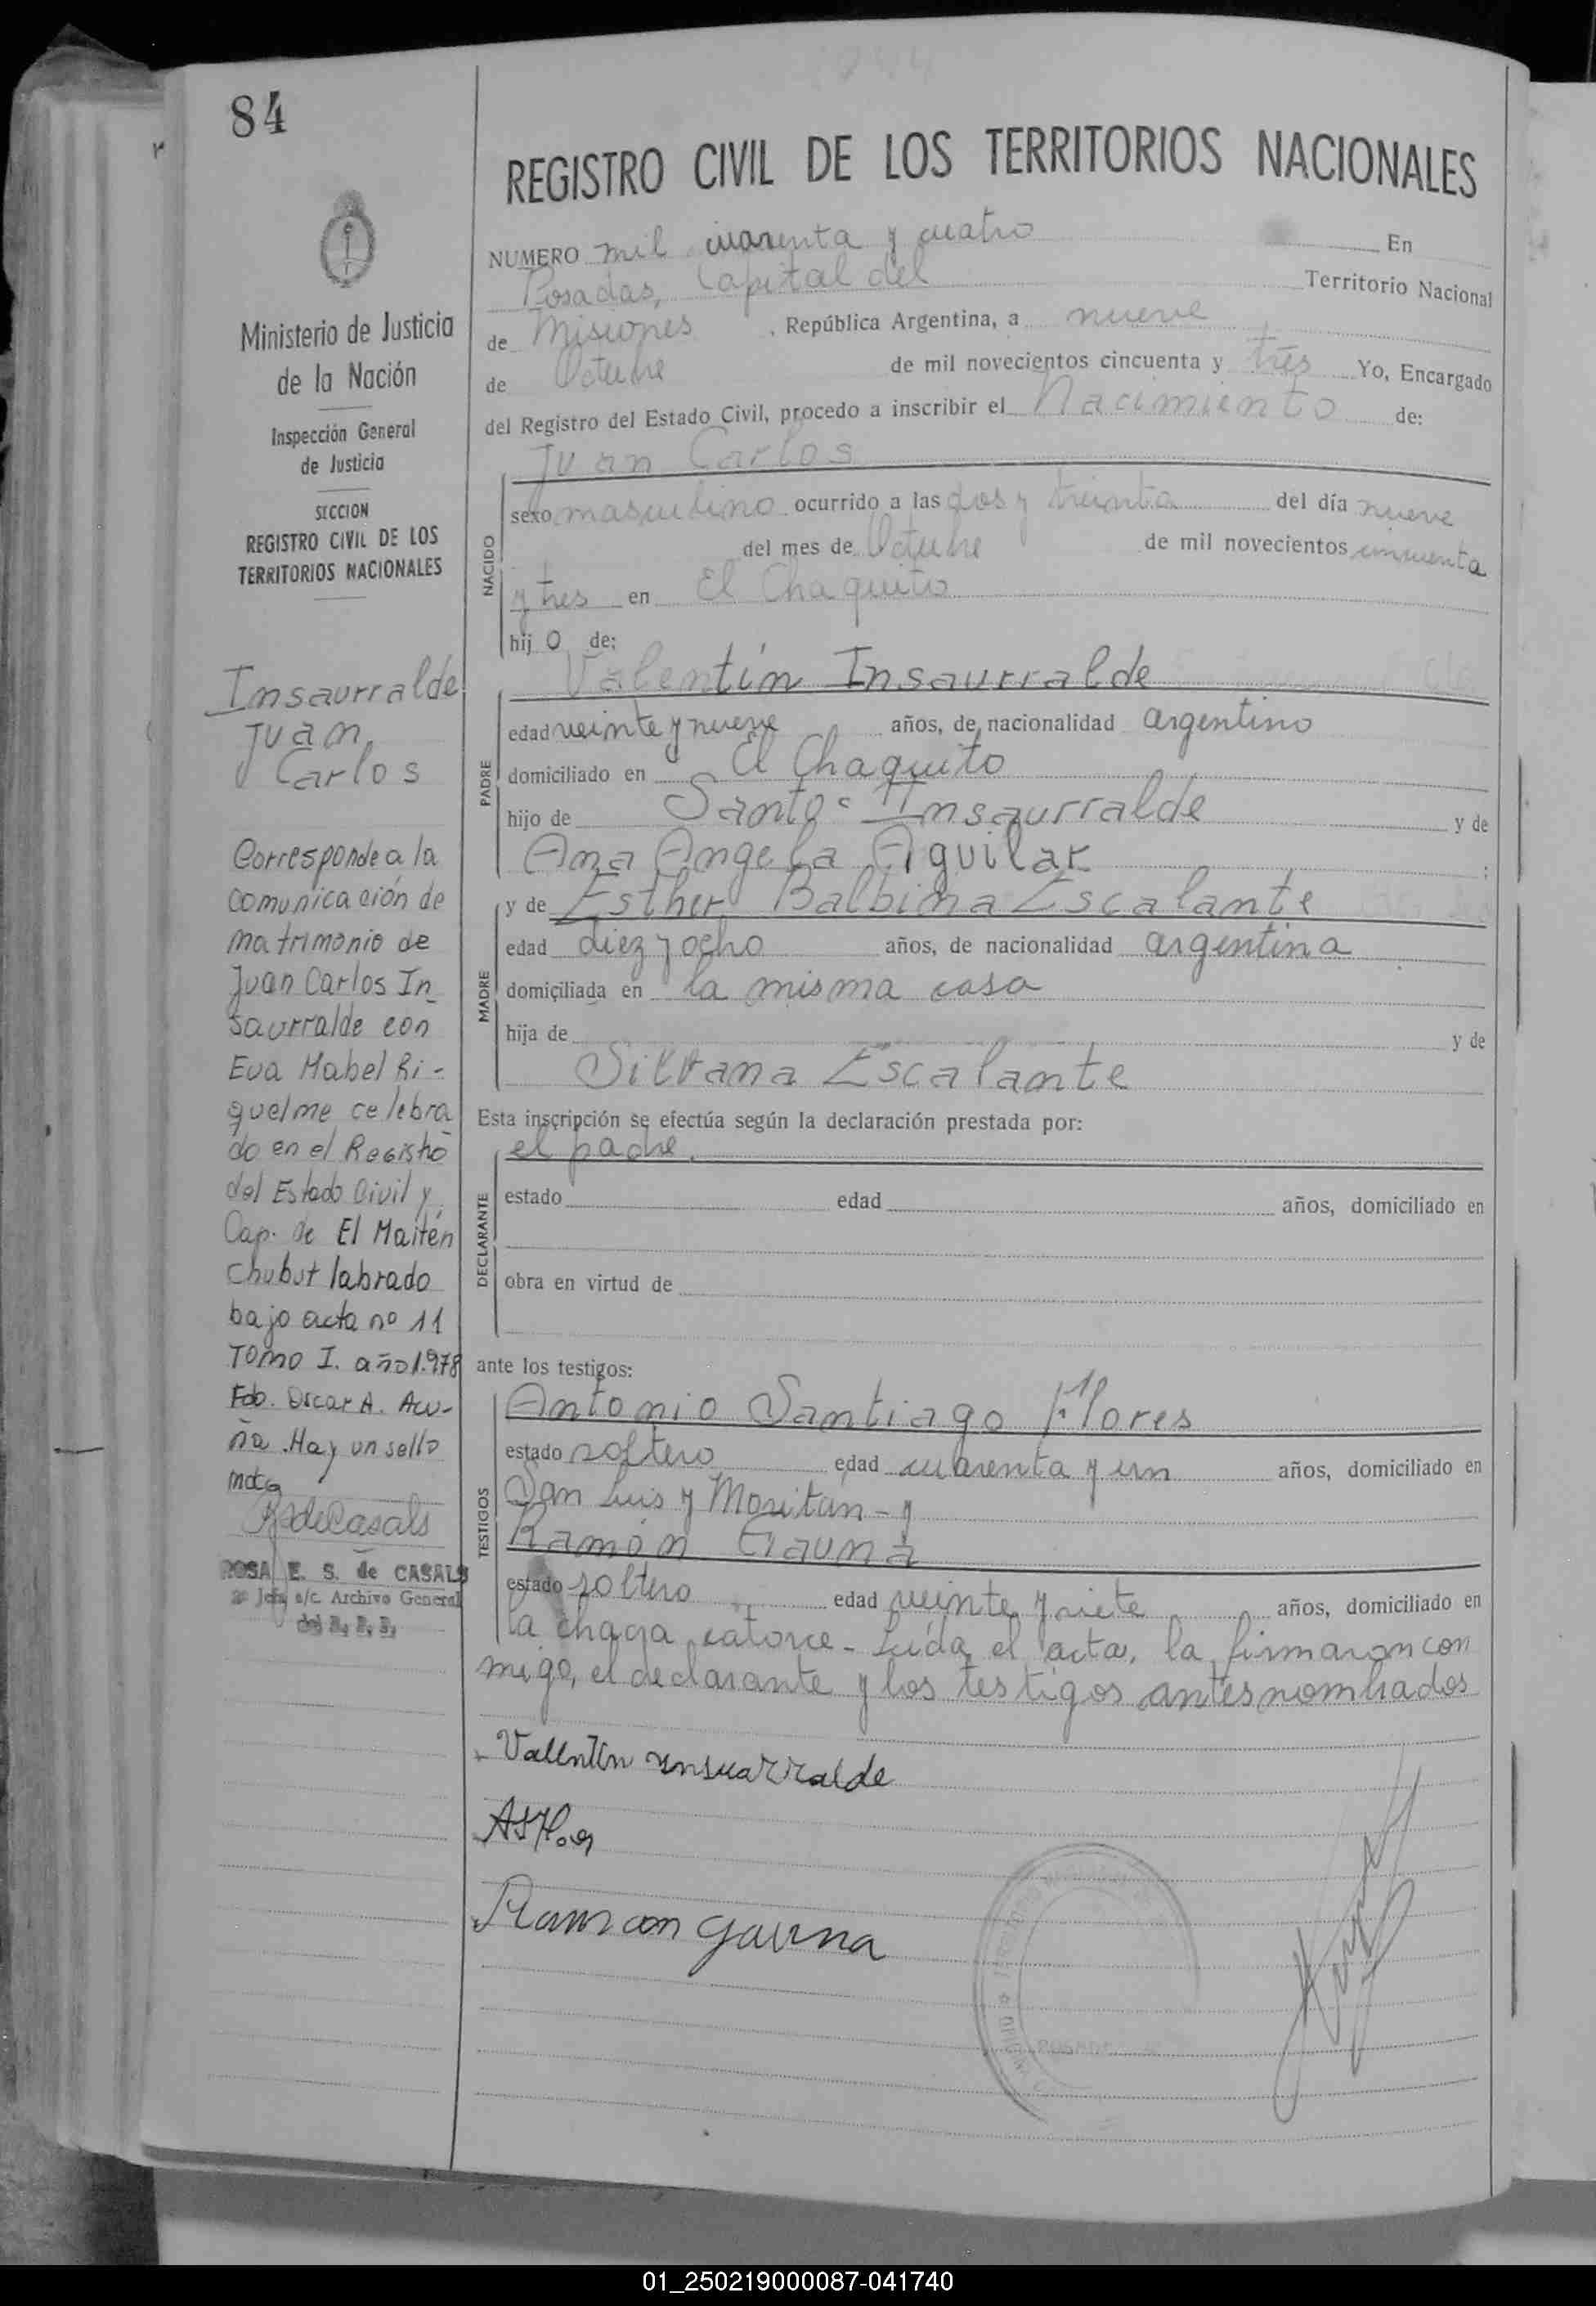 84
REGISTRO CIVIL DE LOS TERRITORIOS NACIONALES
Ministerio de Justicia
de la Nación
Inspección General
de Justicia
SECCION
REGISTRO CIVIL DE LOS
TERRITORIOS NACIONALES
Insaurralde
Juan
Carlos
Corresponde a la
comunicación de
matrimonio de
Juan Carlos In
saurralde con
Eva Mabel Ri-
quelme celebra
do en el Registro
del Estado Civil y
Cap. de El Maitén
Chubut labrado
bajo acta nº 11
TOMO I. año 1.978
Fdo. Oscar A. Acu-
ña. Hay un sello
mdcg
RdeCasals
ROSA E. S. de CASALS
2º Jefe a/c. Archivo General
del R. P. P.
NUMERO mil cuarenta y cuatro En
Posadas, Capital del Territorio Nacional
de Misiones , República Argentina, a nueve
de Octubre de mil novecientos cincuenta y tres Yo, Encargado
del Registro del Estado Civil, procedo a inscribir el Nacimiento de:
Juan Carlos
NACIDO
sexo masculino ocurrido a las dos y treinta del día nueve
del mes de Octubre de mil novecientos cincuenta
y tres en El Chaquito
hijo de:
Valentín Insaurralde
PADRE
edad veinte y nueve años, de nacionalidad argentino
domiciliado en El Chaquito
hijo de Santos Insaurralde y de
Ana Angela Aguilar ;
MADRE
y de Esther Balbina Escalante
edad diez y ocho años, de nacionalidad argentina
domiciliada en la misma casa
hija de y de
Silvana Escalante
Esta inscripción se efectúa según la declaración prestada por:
el padre.
DECLARANTE
estado edad años, domiciliado en
obra en virtud de
ante los testigos:
TESTIGOS
Antonio Santiago Flores
estado soltero edad cuarenta y un años, domiciliado en
San Luis y Moritán - y
Ramón Gauna
estado soltero edad veinte y siete años, domiciliado en
la chaca catorce - Leída el acta, la firmaron con
migo, el declarante y los testigos antes nombrados
Valentin ynsuarralde
ASFlores
Ramon gauna
POSADAS
01_250219000087-041740